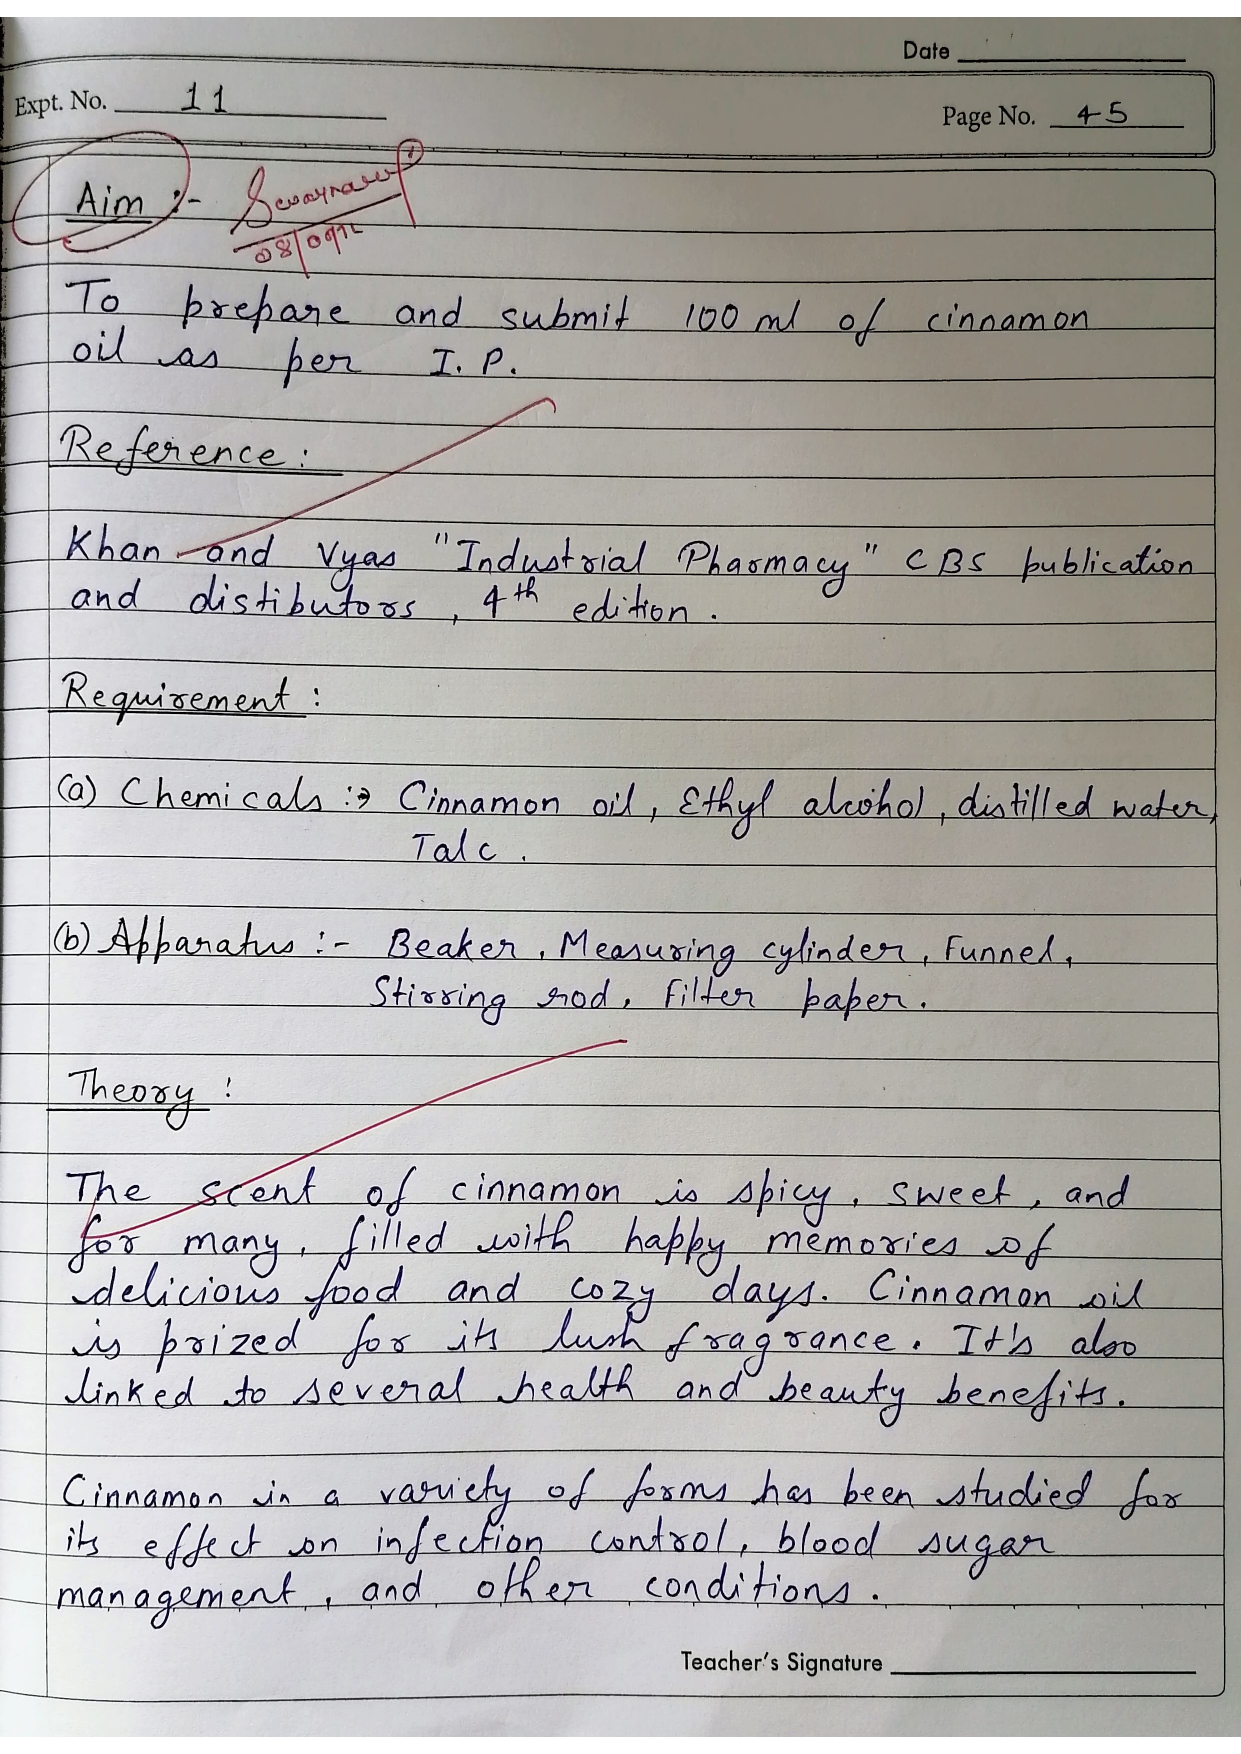 Date
Expt. No. 11
Page No. 45
Aim :-
To prepare and submit 100 ml of cinnamon
oil as per I. P.
Reference :
Khan and Vyas "Industrial Pharmacy" CBS publication
and distibutors, 4th edition.
Requirement :
(a) Chemicals :→ Cinnamon oil, Ethyl alcohol, distilled water,
Talc.
(b) Apparatus :- Beaker, Measuring cylinder, Funnel,
Stirring rod, Filter paper.
Theory :
The scent of cinnamon is spicy, sweet, and
for many, filled with happy memories of
delicious food and cozy days. Cinnamon oil
is prized for its lush fragrance. It's also
linked to several health and beauty benefits.
Cinnamon in a variety of forms has been studied for
its effect on infection control, blood sugar
management, and other conditions.
Teacher's Signature